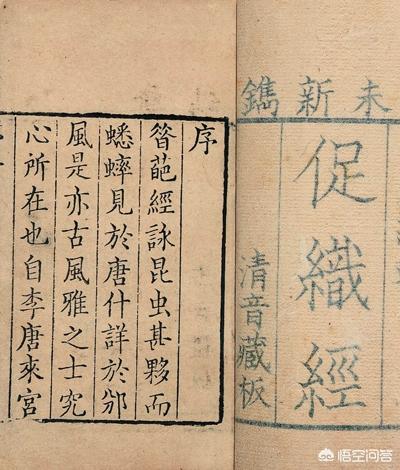 未新鐫
促織經
清音藏板
序
葩經詠昆虫甚夥而
蟋蟀見於唐什詳於邠
風是亦古風雅之士究
心所在也自李唐來宮
悟空问答